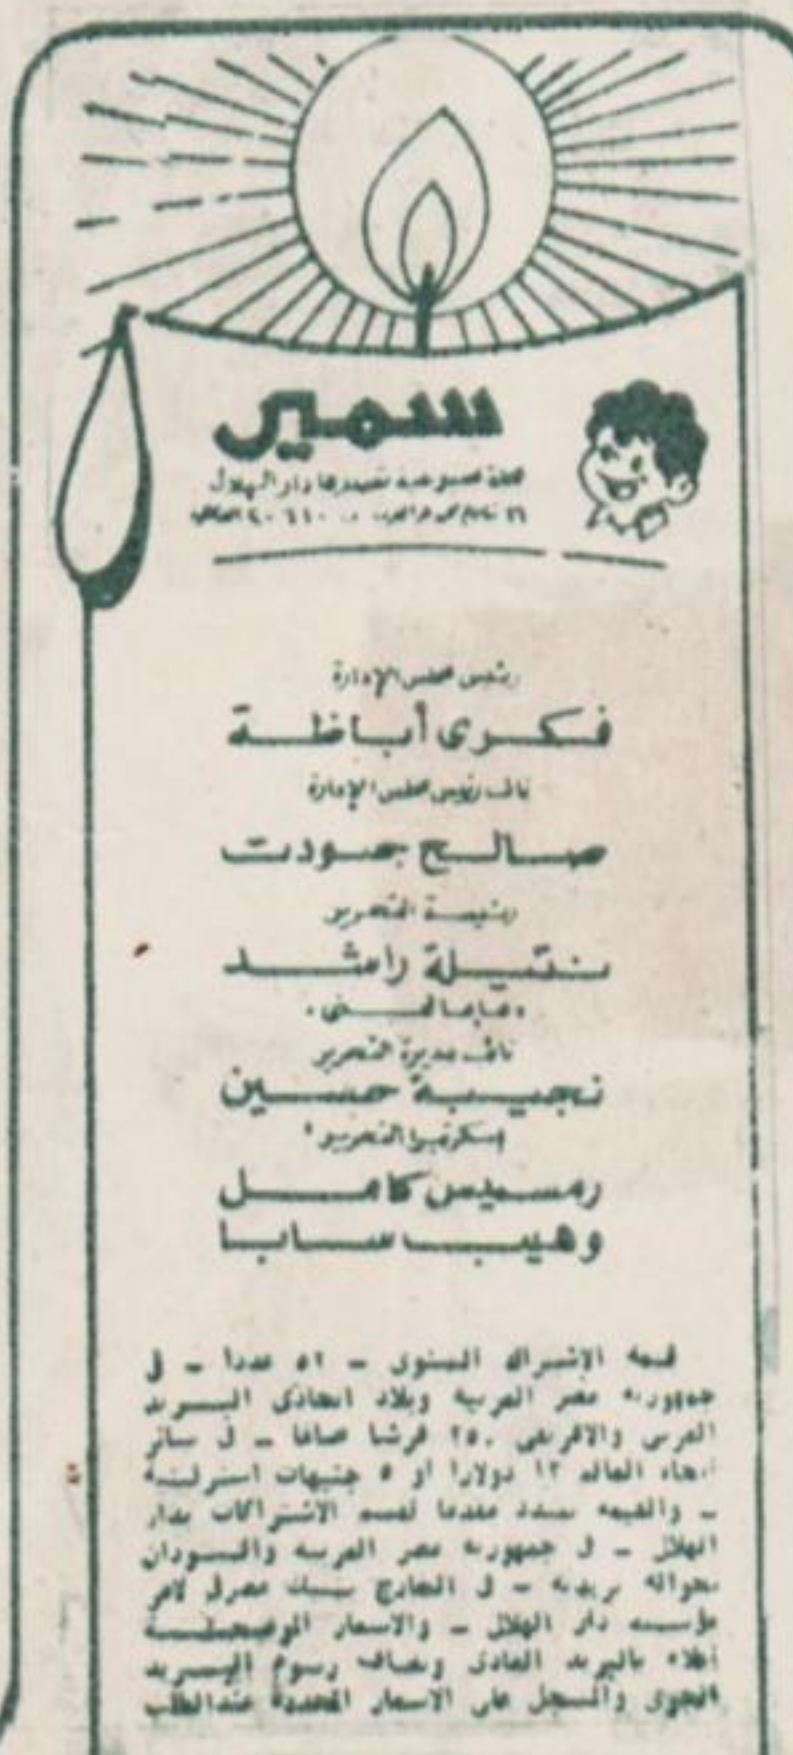 سمير
مجلة أسبوعية تصدرها دار الهلال
رئيس مجلس الإدارة
فكرى أباظة
نائب رئيس مجلس الإدارة
صالح جودت
رئيسة التحرير
نتيلة راشد
« ماما لبنى »
نائب مديرة التحرير
نجيبة حسين
سكرتيرا التحرير
رمسيس كامل
وهيب سابا
قيمة الاشتراك السنوى - ٥٢ عددا - فى
جمهورية مصر العربية وبلاد اتحادى البريد
العربى والافريقى ٢٥٠ قرشا صاغا - فى سائر
أنحاء العالم ١٢ دولارا أو ٥ جنيهات استرلينية
- والقيمة تسدد مقدما لقسم الاشتراكات بدار
الهلال - فى جمهورية مصر العربية والسودان
بحوالة بريدية - فى الخارج بشيك مصرفى لأمر
مؤسسة دار الهلال - والاسعار الموضحة
أعلاه بالبريد العادى وتضاف رسوم البريد
الجوى والمسجل على الاسعار المحددة عند الطلب